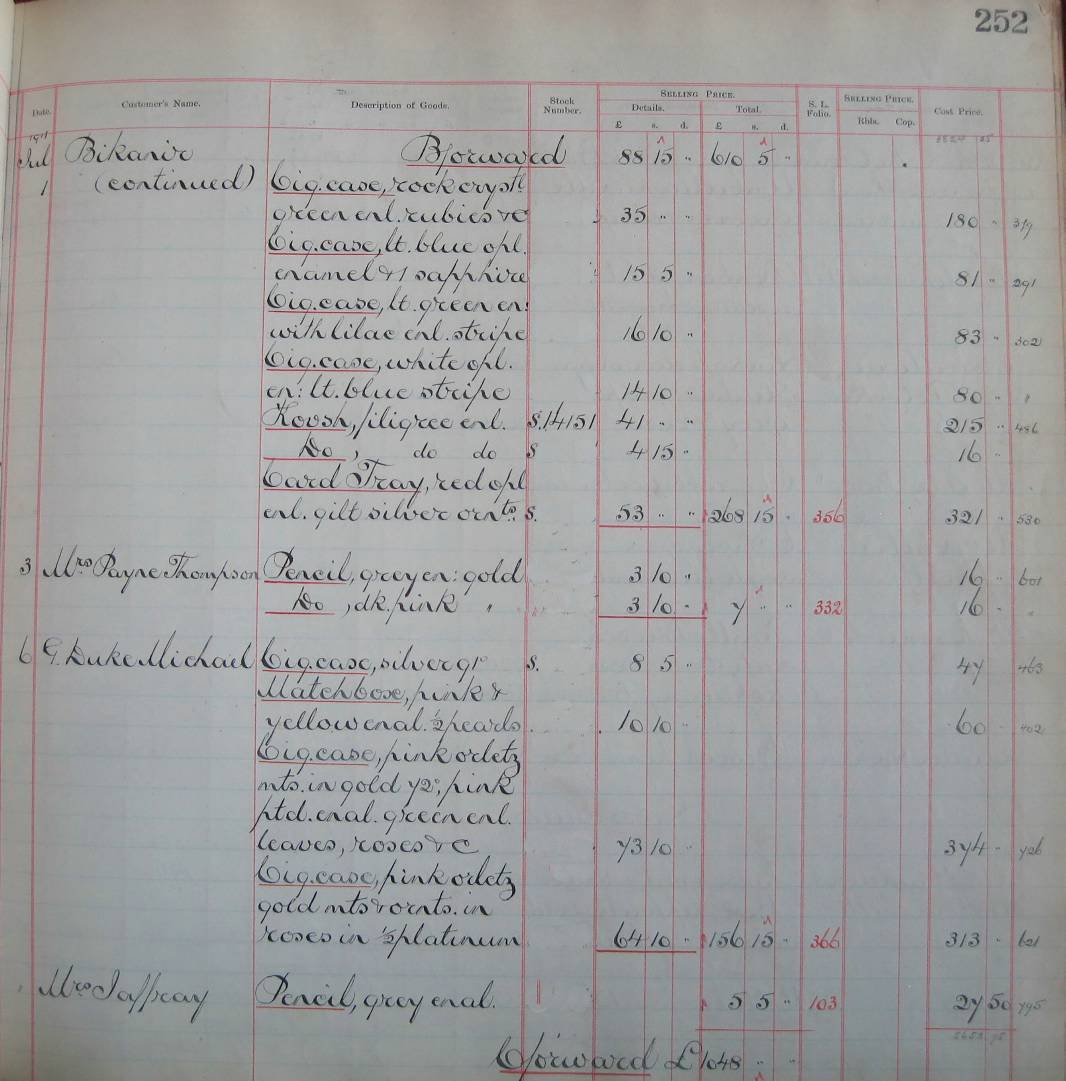 252
SELLING PRICE. SELLING PRICE.
Date. Customer's Name. Description of Goods. Stock Number. Details. Total. S. L. Folio. Rbls. Cop. Cost Price.
£ s. d. £ s. d.
1911
Jul Bikanir B/forward 88 15 " 610 5 "
1 (continued) Cig.case, rock cryst!
green enl. rubies &c 35 " " 180 " 319
Cig.case, lt. blue opl.
enamel & 1 sapphire 15 5 " 81 " 291
Cig.case, lt. green en:
with lilac enl. stripe 16 10 " 83 " 302
Cig.case, white opl.
en: lt. blue stripe 14 10 " 80 " "
Kovsh, filigree enl. S.14151 41 " " 215 " 486
Do, do do S 4 15 " 16 "
Card Tray, red opl
enl. gilt silver ornts. S. 53 " " 268 15 " 356 321 " 530
3 Mrs Payne Thompson Pencil, grey en: gold 3 10 " 16 " 601
Do, dk. pink " 3 10 " 7 " " 332 16 " "
6 G. Duke Michael Cig.case, silver 91° S. 8 5 " 47 463
Matchboxe, pink &
yellow enal. ½ pearls. 10 10 " 60 402
Cig.case, pink orletz
mts. in gold 72°, pink
ptd. enal. green enl.
leaves, roses &c 73 10 " 374 " 726
Cig.case, pink orletz
gold mts & ornts. in
roses in ½ platinum 64 10 " 156 15 " 366 313 " 621
" Mrs Jaffray Pencil, grey enal. 5 5 " 103 27 50 795
C/forward £ 1048 " "